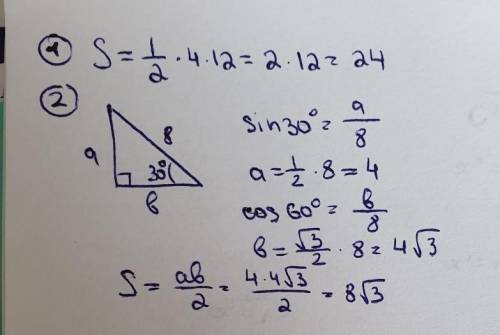 1 S = 1/2 · 4 · 12 = 2 · 12 = 24
2
a 8 30° b
sin30° = a/8
a = 1/2 · 8 = 4
cos60° = b/8
b = √3/2 · 8 = 4√3
S = ab/2 = 4·4√3/2 = 8√3